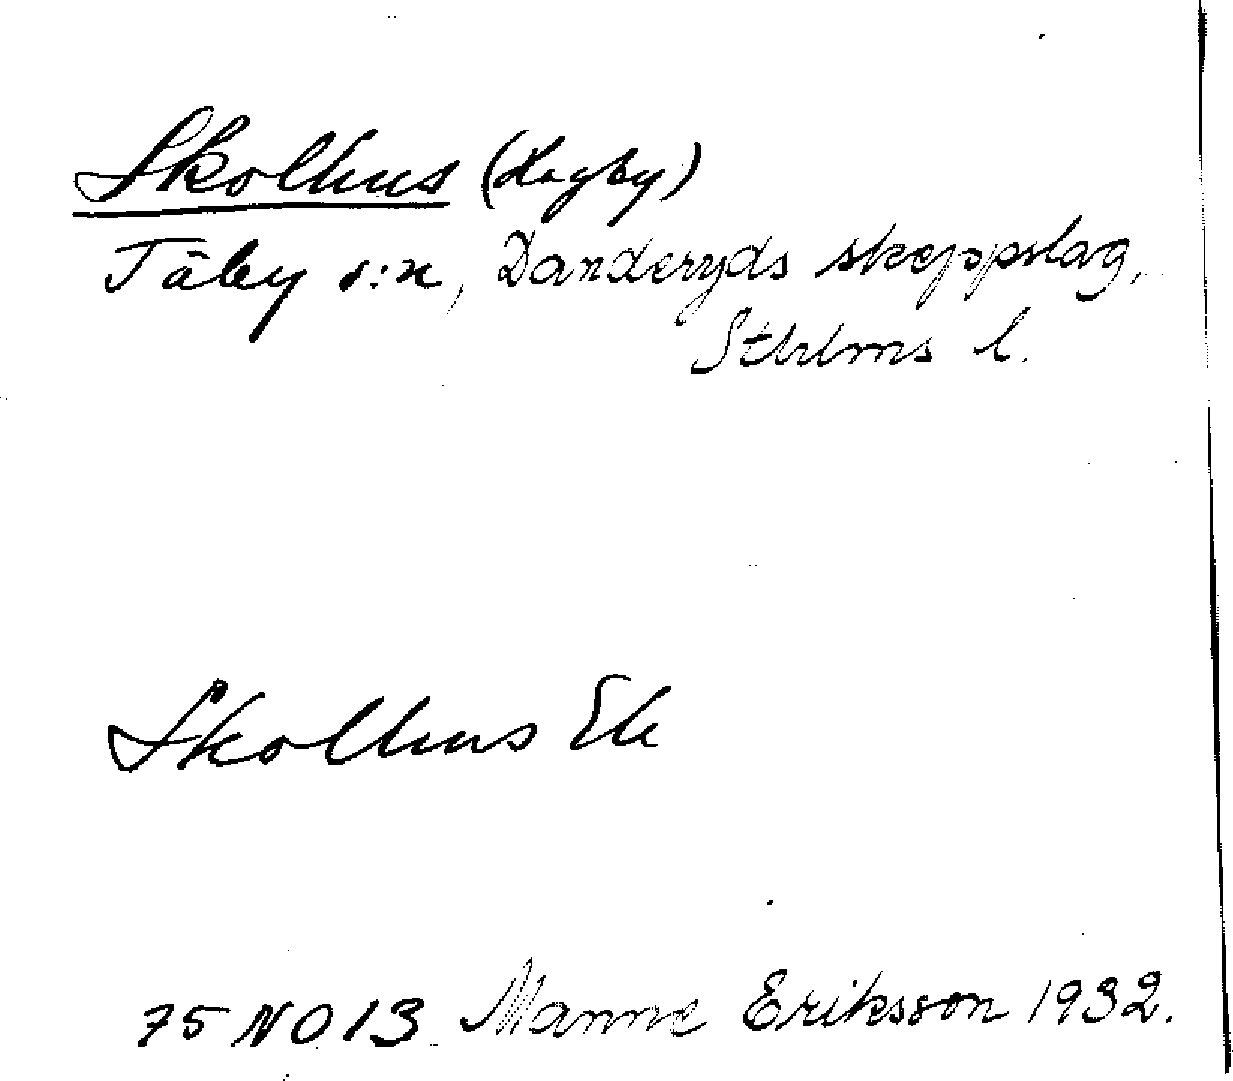 Skolhus (Hagby)
Täby s:n, Danderyds skeppslag,
Sthlms l.
Skolhus Ek
75 NO 13 Manne Eriksson 1932.